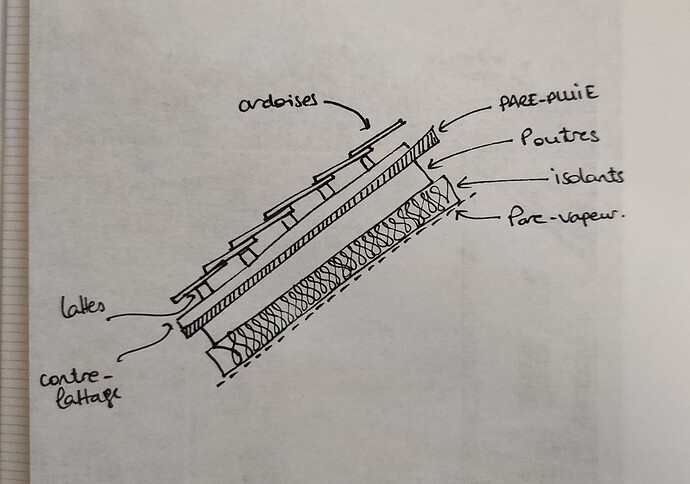 ardoises
PARE-PLUIE
Poutres
isolants
Pare-vapeur.
lattes
contre-
lattage